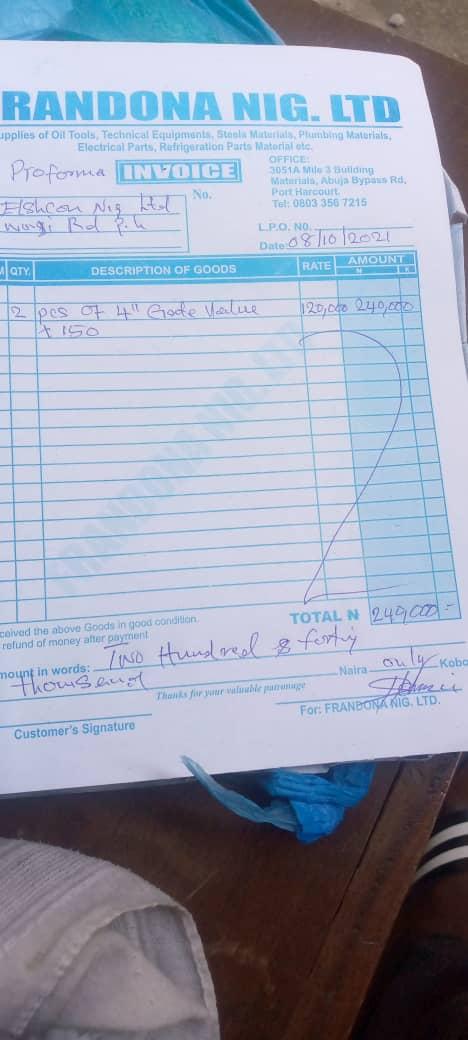 RANDONA NIG. LTD
upplies of Oil Tools, Technical Equipments, Steels Materials, Plumbing Materials,
Electrical Parts, Refrigeration Parts Material etc.
Proforma INVOICE
OFFICE:
3051A Mile 3 Building
Materials, Abuja Bypass Rd,
Port Harcourt.
Tel: 0803 356 7215
No.
Elshcon Nig Ltd
Rd P.h
L.P.O. NO.
Date: 08/10/2021
M QTY. DESCRIPTION OF GOODS RATE AMOUNT
N K
2 pcs of 4" Gate Value 120,000 240,000
x 150
FRANDONA NIG. LTD
ceived the above Goods in good condition.
refund of money after payment
TOTAL N 240,000 =
mount in words: Two Hundred & forty
thousand Naira only Kobo
Thanks for your valuable patronage
Customer's Signature
For: FRANDONA NIG. LTD.